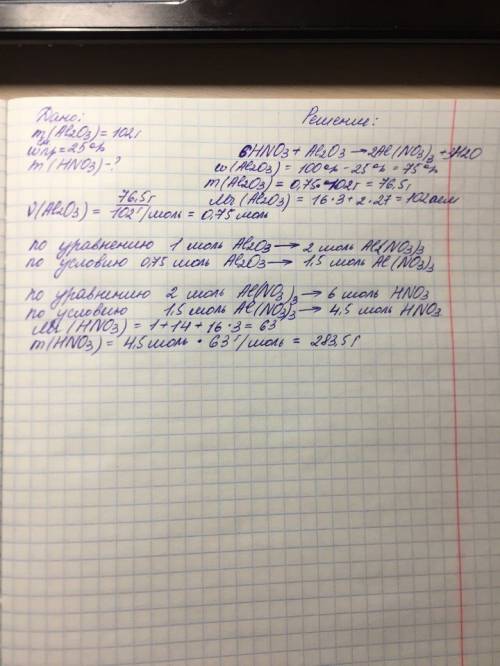 Дано:
m(Al2O3)=102г
см
wпр=25%
m(HNO3)-?
Решение:
6HNO3+Al2O3→2Al(NO3)3+3H2O
w(Al2O3)=100%-25%=75%
m(Al2O3)=0,75·102г=76,5г
Mr(Al2O3)=16·3+2·27=102аем
ν(Al2O3)=76,5г/102г/моль=0,75моль
по уравнению 1 моль Al2O3→2 моль Al2(NO3)3
по условию 0,75 моль Al2O3→1,5 моль Al(NO3)3
по уравнению 2 моль Al(NO3)3→6 моль HNO3
по условию 1,5 моль Al(NO3)3→4,5 моль HNO3
Mr(HNO3)=1+14+16·3=63
m(HNO3)=4,5моль·63г/моль=283,5г